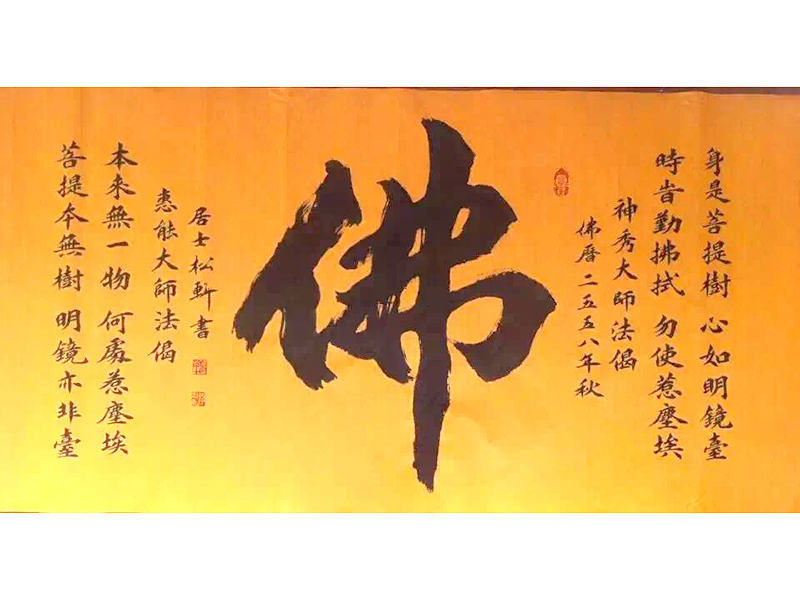 身是菩提樹 心如明鏡臺
時旹勤拂拭 勿使惹塵埃
神秀大師法偈
佛曆二五五八年秋
佛
菩提本無樹 明鏡亦非臺
本來無一物 何處惹塵埃
惠能大師法偈
居士松軒書